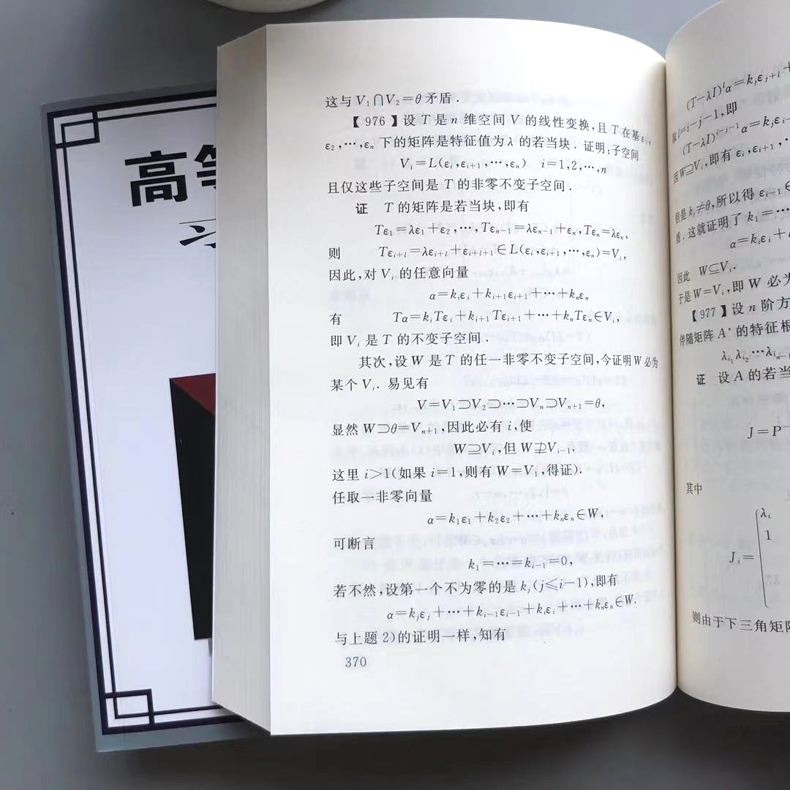 高等
习
这与V₁⋂V₂=θ矛盾.
【976】设T是n维空间V的线性变换,且T在基ε₁,
ε₂,⋯,εₙ下的矩阵是特征值为λ的若当块.证明:子空间
Vᵢ=L(εᵢ,εᵢ₊₁,⋯,εₙ) i=1,2,⋯,n
且仅这些子空间是T的非零不变子空间.
证 T的矩阵是若当块,即有
Tε₁=λε₁+ε₂,⋯,Tεₙ₋₁=λεₙ₋₁+εₙ,Tεₙ=λεₙ,
则 Tεᵢ₊ₗ=λεᵢ₊ₗ+εᵢ₊ₗ₊₁∈L(εᵢ,εᵢ₊₁,⋯,εₙ)=Vᵢ,
因此,对Vᵢ的任意向量
α=kᵢεᵢ+kᵢ₊₁εᵢ₊₁+⋯+kₙεₙ
有 Tα=kᵢTεᵢ+kᵢ₊₁Tεᵢ₊₁+⋯+kₙTεₙ∈Vᵢ,
即Vᵢ是T的不变子空间.
其次,设W是T的任一非零不变子空间,今证明W必为
某个Vᵢ.易见有
V=V₁⊃V₂⊃⋯⊃Vₙ⊃Vₙ₊₁=θ,
显然W⊃θ=Vₙ₊₁,因此必有i,使
W⊇Vᵢ,但W⊉Vᵢ₋₁.
这里i>1(如果i=1,则有W=V₁,得证).
任取一非零向量
α=k₁ε₁+k₂ε₂+⋯+kₙεₙ∈W,
可断言
k₁=⋯=kᵢ₋₁=0,
若不然,设第一个不为零的是kⱼ(j≤i-1),即有
α=kⱼεⱼ+⋯+kᵢ₋₁εᵢ₋₁+kᵢεᵢ+⋯+kₙεₙ∈W.
与上题2)的证明一样,知有
370
(T-λI)ˡα=kⱼεⱼ₊ₗ+
i-j-1,即
(T-λI)ⁱ⁻ʲ⁻¹α=kⱼεᵢ₋
因W⊇Vᵢ,即有εᵢ,εᵢ₊₁,
但是kⱼ≠θ,所以得εᵢ₋₁
这就证明了k₁=⋯
α=kᵢεᵢ+
因此 W⊆Vᵢ.
于是W=Vᵢ,即W必为
【977】设n阶方
伴随矩阵A*的特征根
λᵢ₁λᵢ₂⋯λᵢₙ₋
证 设A的若当
J=P⁻
其中
Jᵢ=
λᵢ
1
则由于下三角矩阵